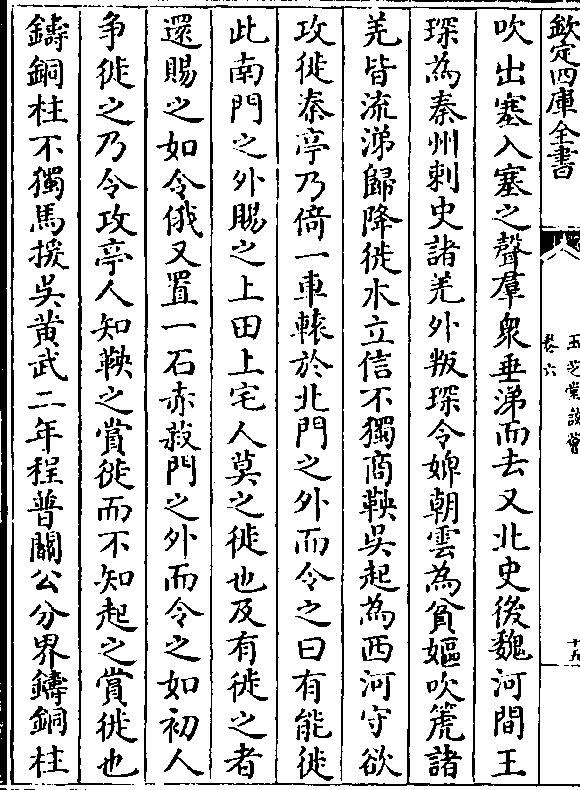 欽定四庫全書
玉芝堂談薈
卷六
十九
吹出塞入塞之聲羣衆垂涕而去又北史後魏河間王
琛為秦州刺史諸羌外叛琛令婢朝雲為貧嫗吹箎諸
羌皆流涕歸降徙木立信不獨商鞅吳起為西河守欲
攻徙秦亭乃倚一車轅於北門之外而令之曰有能徙
此南門之外賜之上田上宅人莫之徙也及有徙之者
還賜之如令俄又置一石赤菽門之外而令之如初人
争徙之乃令攻亭人知鞅之賞徙而不知起之賞徙也
鑄銅柱不獨馬援吳黄武二年程普關公分界鑄銅柱